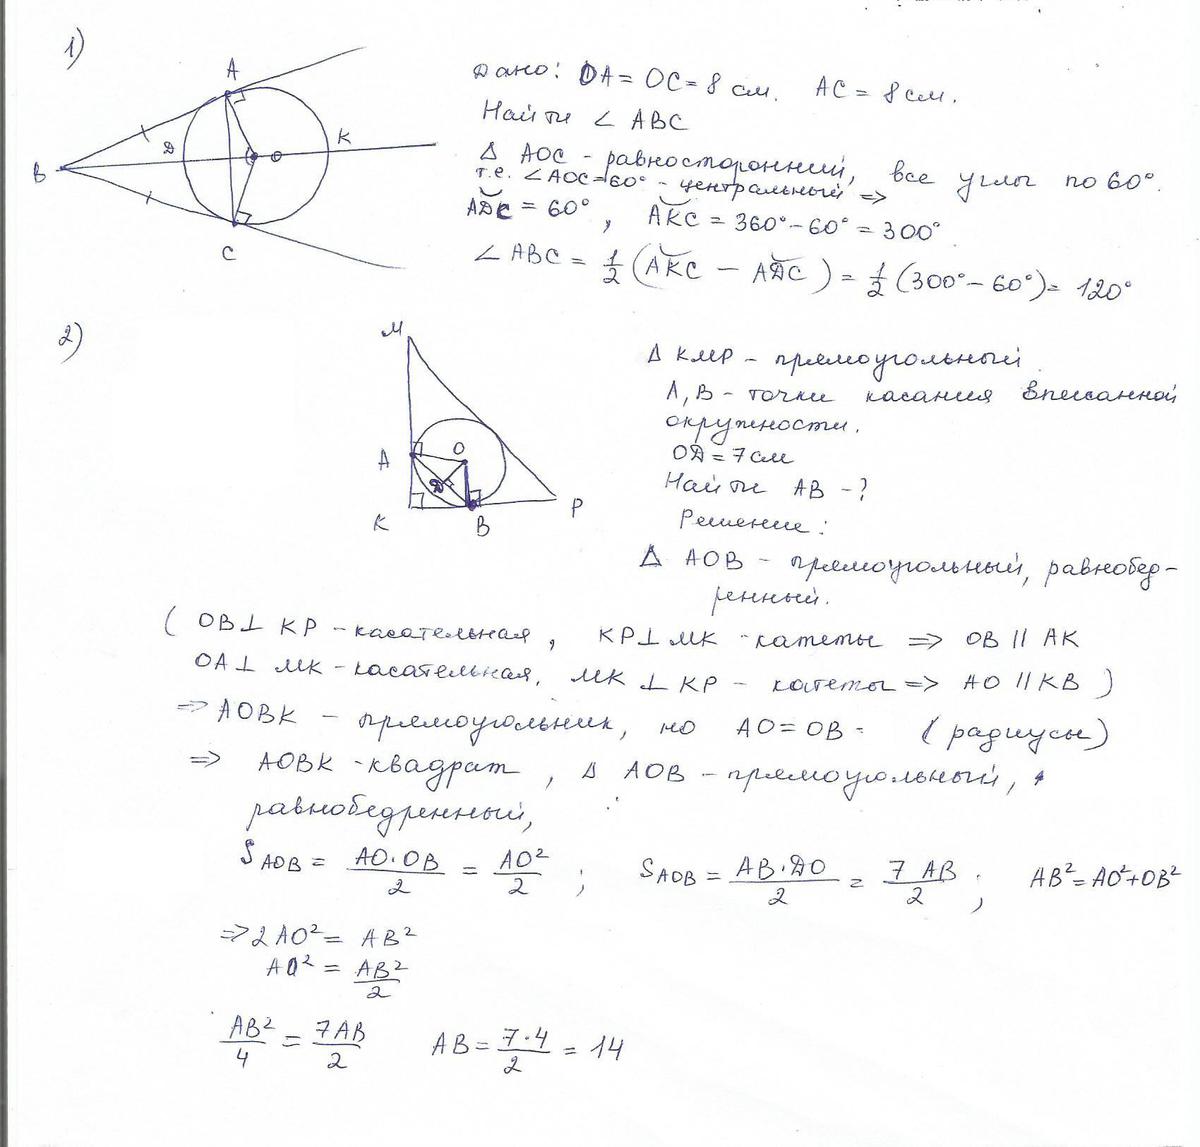 1)
A
B
D
O
K
C
Дано: OA = OC = 8 см. AC = 8 см.
Найти ∠ ABC
Δ AOC - равносторонний, все углы по 60°.
т.е. ∠AOC = 60° - центральный ⇒
ADC = 60°, AKC = 360° - 60° = 300°
∠ ABC = 1/2 (AKC - ADC) = 1/2 (300° - 60°) = 120°
2)
M
A
O
D
K
B
P
Δ KMP - прямоугольный
A, B - точки касания вписанной
окружности.
OD = 7 см
Найти AB - ?
Решение:
Δ AOB - прямоугольный, равнобед-
ренный.
( OB ⊥ KP - касательная, KP ⊥ MK - катеты ⇒ OB || AK
OA ⊥ MK - касательная, MK ⊥ KP - катеты ⇒ AO || KB )
⇒ AOBK - прямоугольник, но AO = OB - (радиусы)
⇒ AOBK - квадрат, Δ AOB - прямоугольный,
равнобедренный,
S AOB = AO·OB/2 = AO²/2 ; S AOB = AB·DO/2 = 7 AB/2 ; AB² = AO² + OB²
⇒ 2AO² = AB²
AO² = AB²/2
AB²/4 = 7AB/2 AB = 7·4/2 = 14